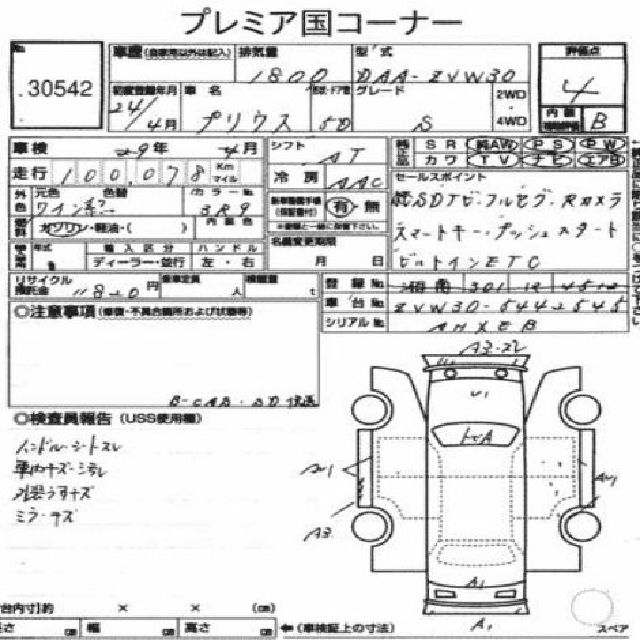 プレミア国コーナー
No.
30542
車歴(自家用以外は記入)
排気量
1800
型式
DAA-ZVW30
評価点
4
初度登録年月
24/4月
車名
プリウス
型状・ドア数
5D
グレード
S
2WD
4WD
内装
B
車検
29年 4月
シフト
AT
純正品
SR AAW PS PW
カワ TV ナビ エアB
走行
100,078 Km マイル
冷房
AAC
セールスポイント
純SDナビ・フルセグ・Rカメラ
外色
元色
ワイン系
色替
カラーNo.
3R9
内装色
有・無
燃料
ガソリン・軽油・( )
スマートキー・プッシュスタート
名義変更期限
月 日
ビルトインETC
年式
輸入区分
ディーラー・並行
ハンドル
左・右
リサイクル預託金
11820円
乗車定員
人
積載量
t
登録No.
301
4512
車台No.
ZVW30-5442545
シリアルNo.
AHXEB
◎注意事項(修復・不具合箇所および状態等)
B-CAB・SD
◎検査員報告(USS使用欄)
ハンドル・シートスレ
車内キズ・汚レ
外装ウすキズ
ミラーキズ
A3・スレ
U1
トビA
A3
A1
A1
荷台内寸)約 × × (cm)
長さ cm 幅 cm 高さ cm
←(車検証上の寸法)
スペア